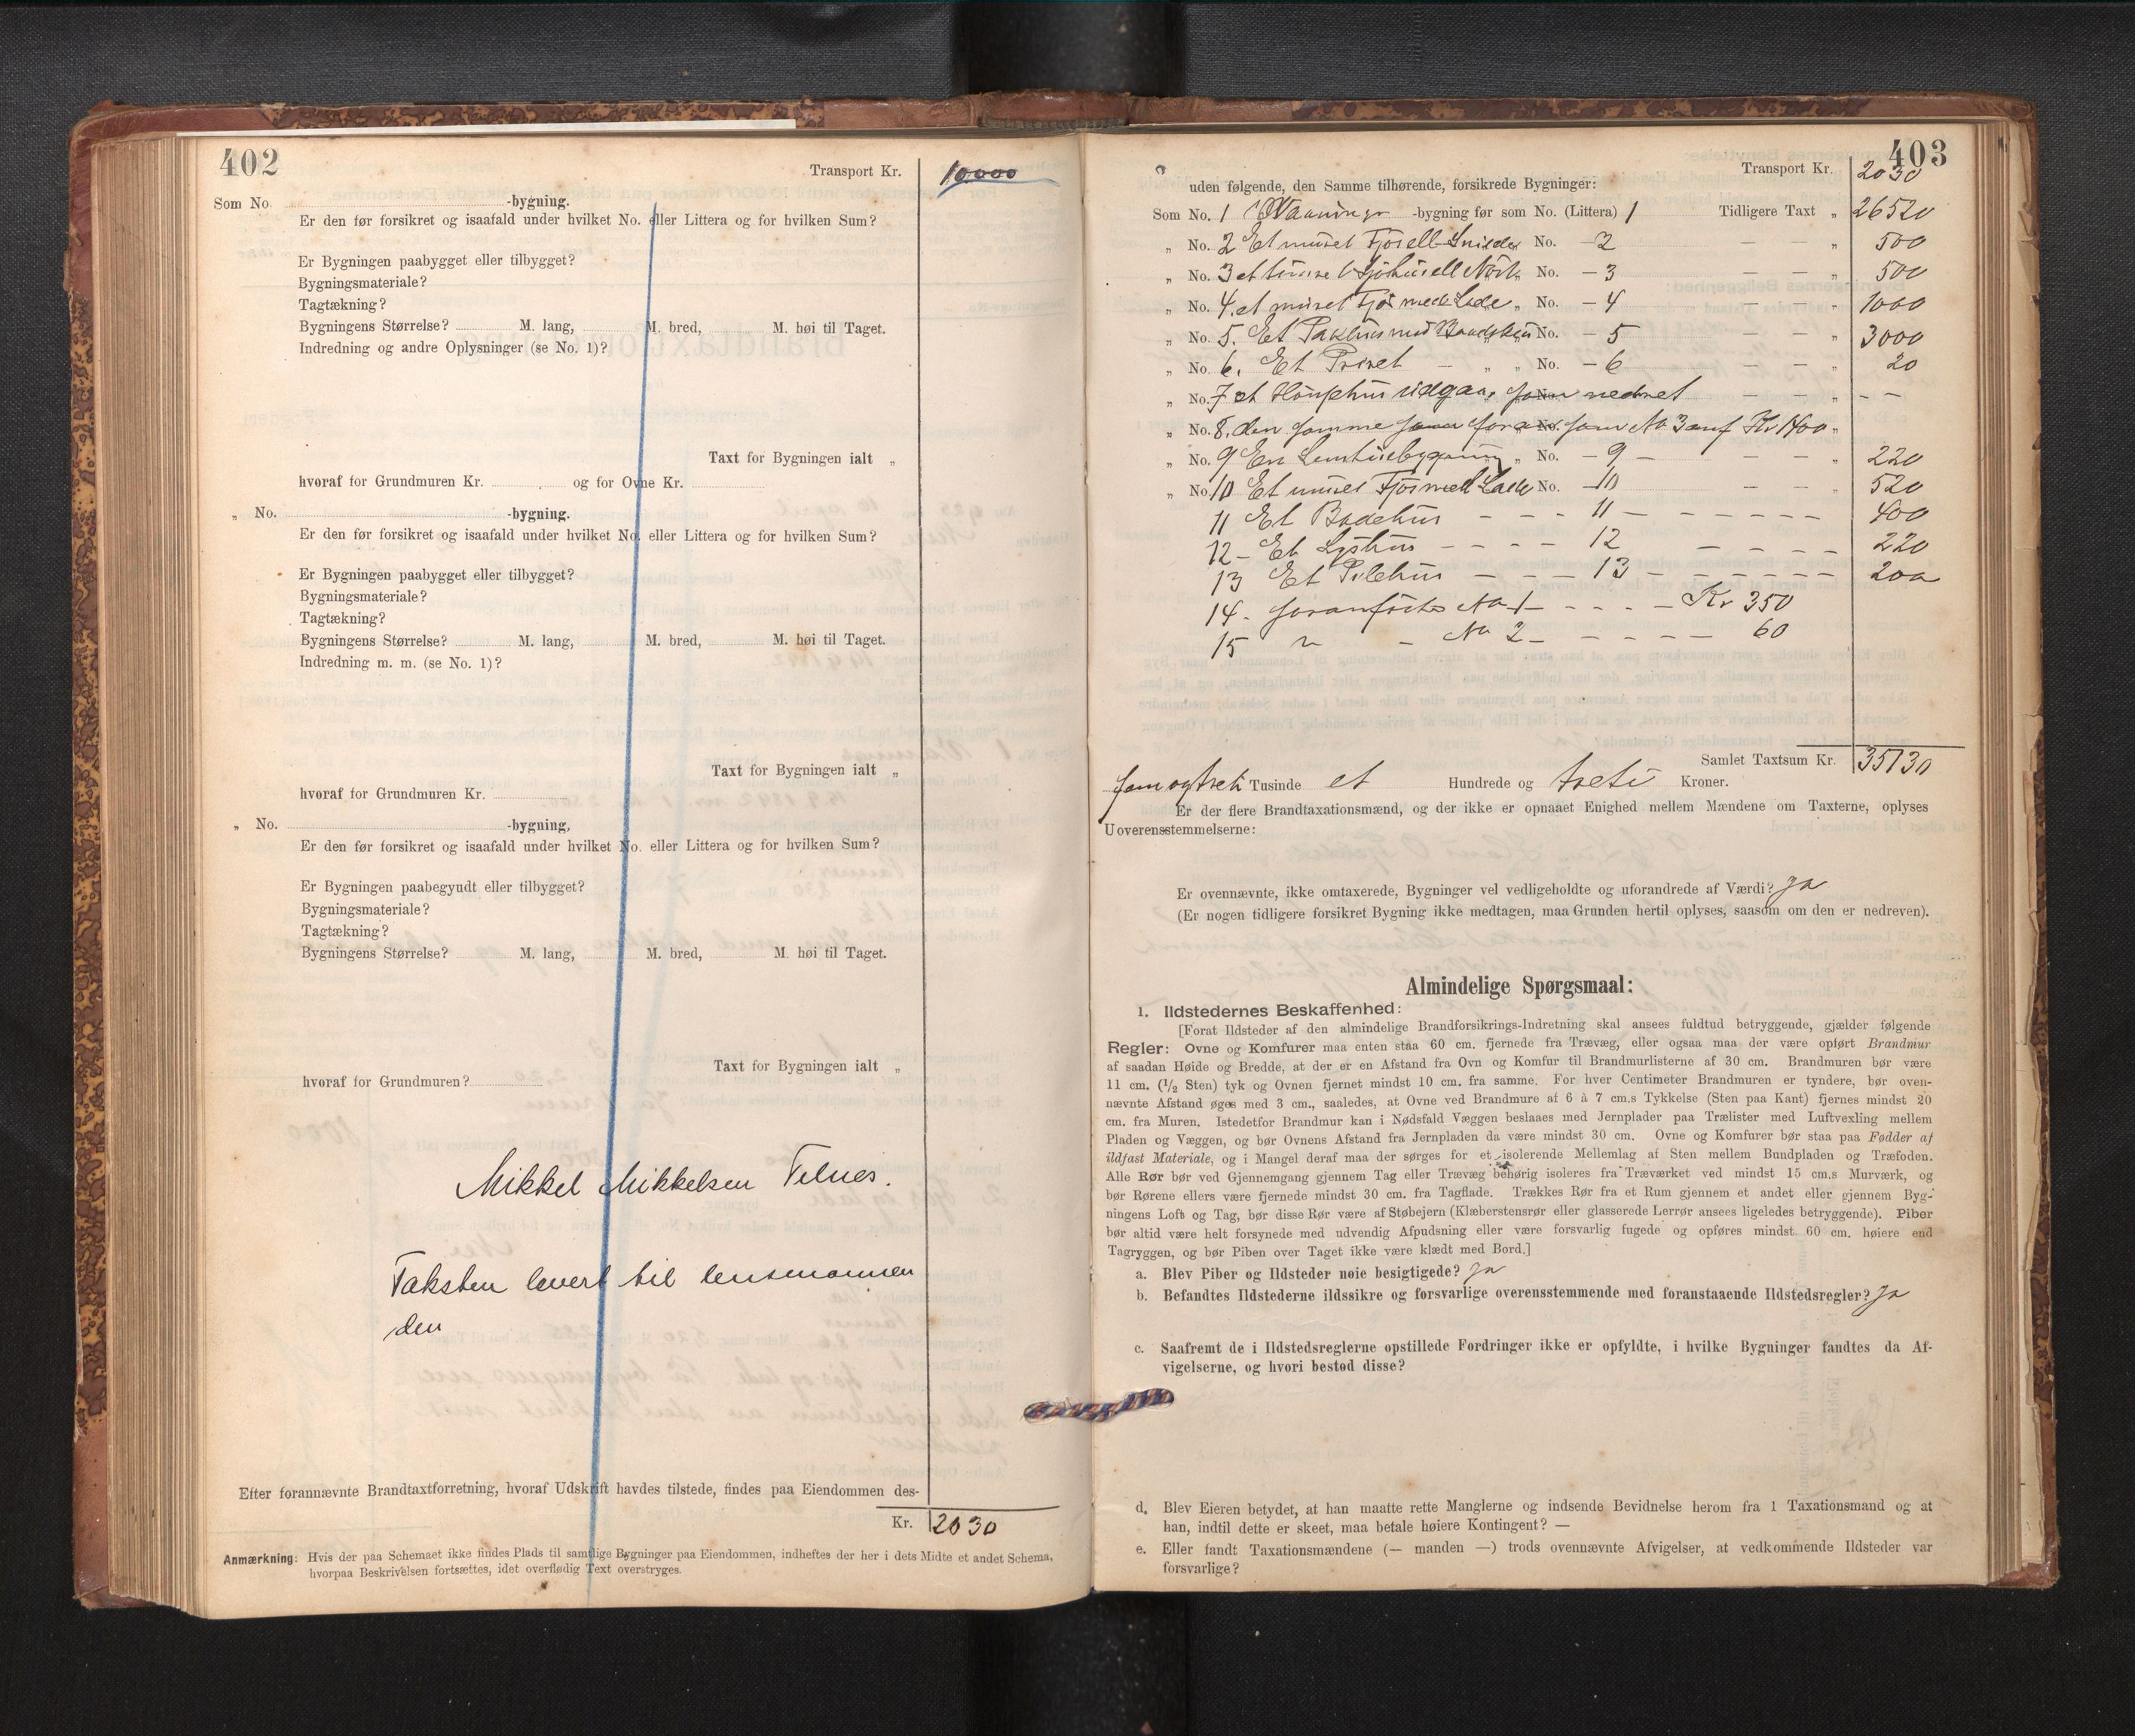 402
Transport Kr. 10.000
Som No. -bygning.
Er den før forsikret og isaafald under hvilket No. eller Littera og for hvilken Sum?
Er Bygningen paabygget eller tilbygget?
Bygningsmateriale?
Tagtækning?
Bygningens Størrelse? M. lang, M. bred, M. høi til Taget.
Indredning og andre Oplysninger (se No. 1)?
Taxt for Bygningen ialt „
hvoraf for Grundmuren Kr. og for Ovne Kr.
„ No. -bygning.
Er den før forsikret og isaafald under hvilket No. eller Littera og for hvilken Sum?
Er Bygningen paabygget eller tilbygget?
Bygningsmateriale?
Tagtækning?
Bygningens Størrelse? M. lang, M. bred, M. høi til Taget.
Indredning m. m. (se No. 1)?
Taxt for Bygningen ialt „
hvoraf for Grundmuren Kr.
„ No. -bygning,
Er den før forsikret og isaafald under hvilket No. eller Littera og for hvilken Sum?
Er Bygningen paabegyndt eller tilbygget?
Bygningsmateriale?
Tagtækning?
Bygningens Størrelse? M. lang, M. bred, M. høi til Taget.
Taxt for Bygningen ialt „
hvoraf for Grundmuren?
Mikkel Mikkelsen Telnes.
Taksten levert til lensmannen
den
Efter forannævnte Brandtaxtforretning, hvoraf Udskrift havdes tilstede, findes paa Eiendommen des-
Kr. 2030
Anmærkning: Hvis der paa Schemaet ikke findes Plads til samtlige Bygninger paa Eiendommen, indheftes der her i dets Midte et andet Schema,
hvorpaa Beskrivelsen fortsættes, idet overflødig Text overstryges.
403
Transport Kr. 2030
uden følgende, den Samme tilhørende, forsikrede Bygninger:
Som No. 1 Vaanings -bygning før som No. (Littera) 1 Tidligere Taxt „ 26520
„ No. 2 Et muret Fjös ell No. - 2 — — „ 500
„ No. 3 et No. - 3 — — „ 500
„ No. 4. et muret Fjös med Lade „ No. - 4 — — „ 1000
„ No. 5. Et Pakhus med Baadehus No. - 5 — — „ 3000
„ No. 6. Et Privet — „ „ No. - 6 — — „ 20
„ No. 7 et udgaar som nedret — — „ - -
„ No. 8. den samme som foran som No 3 anf Kr 1400 „
„ No. 9 En „ No. - 9 - — — 220
„ No. 10 Et muret Fjös med Lade No. - 10 — — „ 520
11 Et Badehus - - - 11 - - - - - - 400
12 - Et Lysthus - - - - 12 - - - - 220
13 Et Pilehus - - - 13 - - - - - - 200
14. foranförte No 1 - - - - Kr 350
15 " - No 2 - - - - - 60
Samlet Taxtsum Kr. 35130
fem og treti Tusinde et Hundrede og treti Kroner.
Er der flere Brandtaxationsmænd, og der ikke er opnaaet Enighed mellem Mændene om Taxterne, oplyses
Uoverensstemmelserne:
Er ovennævnte, ikke omtaxerede, Bygninger vel vedligeholdte og uforandrede af Værdi? Ja
(Er nogen tidligere forsikret Bygning ikke medtagen, maa Grunden hertil oplyses, saasom om den er nedreven).
Almindelige Spørgsmaal:
1. Ildstedernes Beskaffenhed:
[Forat Ildsteder af den almindelige Brandforsikrings-Indretning skal ansees fuldtud betryggende, gjælder følgende
Regler: Ovne og Komfurer maa enten staa 60 cm. fjernede fra Trævæg, eller ogsaa maa der være opført Brandmur
af saadan Høide og Bredde, at der er en Afstand fra Ovn og Komfur til Brandmurlisterne af 30 cm. Brandmuren bør være
11 cm. (½ Sten) tyk og Ovnen fjernet mindst 10 cm. fra samme. For hver Centimeter Brandmuren er tyndere, bør oven-
nævnte Afstand øges med 3 cm., saaledes, at Ovne ved Brandmure af 6 à 7 cm.s Tykkelse (Sten paa Kant) fjernes mindst 20
cm. fra Muren. Istedetfor Brandmur kan i Nødsfald Væggen beslaaes med Jernplader paa Trælister med Luftvexling mellem
Pladen og Væggen, og bør Ovnens Afstand fra Jernpladen da være mindst 30 cm. Ovne og Komfurer bør staa paa Fødder af
ildfast Materiale, og i Mangel deraf maa der sørges for et isolerende Mellemlag af Sten mellem Bundpladen og Træfoden.
Alle Rør bør ved Gjennemgang gjennem Tag eller Trævæg behørig isoleres fra Træværket ved mindst 15 cm.s Murværk, og
bør Rørene ellers være fjernede mindst 30 cm. fra Tagflade. Trækkes Rør fra et Rum gjennem et andet eller gjennem Byg-
ningens Loft og Tag, bør disse Rør være af Støbejern (Klæberstensrør eller glasserede Lerrør ansees ligeledes betryggende). Piber
bør altid være helt forsynede med udvendig Afpudsning eller være forsvarlig fugede og opføres mindst 60 cm. høiere end
Tagryggen, og bør Piben over Taget ikke være klædt med Bord.]
a. Blev Piber og Ildsteder nøie besigtigede? ja
b. Befandtes Ildstederne ildssikre og forsvarlige overensstemmende med foranstaaende Ildstedsregler? Ja
c. Saafremt de i Ildstedsreglerne opstillede Fordringer ikke er opfyldte, i hvilke Bygninger fandtes da Af-
vigelserne, og hvori bestod disse?
d. Blev Eieren betydet, at han maatte rette Manglerne og indsende Bevidnelse herom fra 1 Taxationsmand og at
han, indtil dette er skeet, maa betale høiere Kontingent? —
e. Eller fandt Taxationsmændene (— manden —) trods ovennævnte Afvigelser, at vedkommende Ildsteder var
forsvarlige?